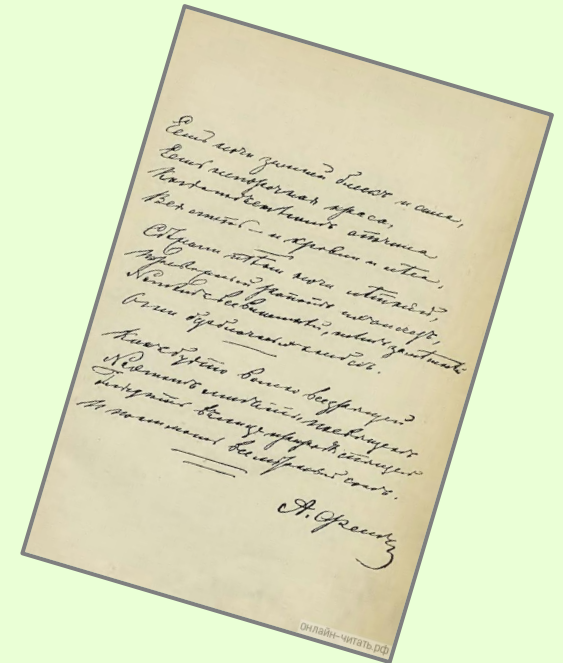 Есть ночи зимней блескъ и сила,
Есть непорочная краса,
Когда подъ снѣгомъ опочила
Вся степь — и кровли и лѣса,
Сбѣжали тѣни ночи лѣтней,
Тревожный ропотъ ихъ исчезъ,
Но тѣмъ всевластнѣй, тѣмъ замѣтнѣй
Огни безоблачныхъ небесъ.
Какъ будто волею всезрящей
На этотъ мигъ ты посвященъ
Глядѣть въ лицо природы спящей
И понимать всемірный сонъ.
А. Фетъ
онлайн-читать.рф